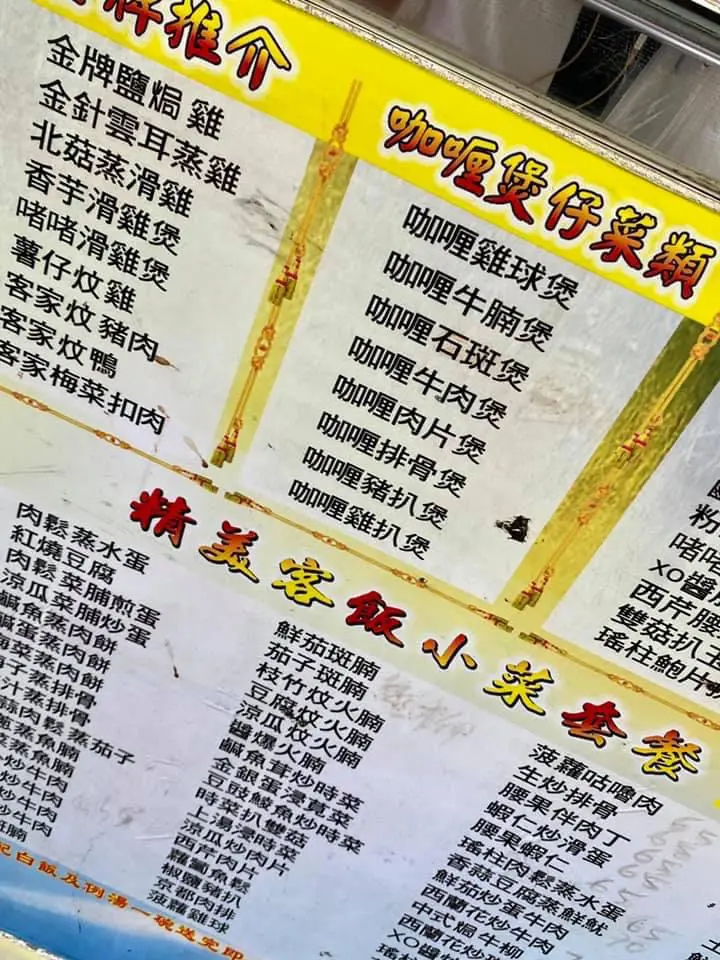 牌推介
金牌鹽焗雞
金針雲耳蒸雞
北菇蒸滑雞
香芋滑雞煲
啫啫滑雞煲
薯仔炆雞
客家炆豬肉
客家炆鴨
客家梅菜扣肉
咖喱煲仔菜類
咖喱雞球煲
咖喱牛腩煲
咖喱石斑煲
咖喱牛肉煲
咖喱肉片煲
咖喱排骨煲
咖喱豬扒煲
咖喱雞扒煲
粉
啫啫
XO醬
西芹腰
雙菇扒
瑤柱鮑片
精美客飯小菜套餐
肉鬆蒸水蛋
紅燒豆腐
肉鬆菜脯煎蛋
涼瓜菜脯炒蛋
鹹魚蒸肉餅
鹹蛋蒸肉餅
梅菜蒸肉餅
子蒸排骨
汁蒸排骨
蒜肉鬆蒸茄子
蒸魚腩
蒸魚腩
炒牛肉
炒牛肉
炒牛肉
斑腩
鮮茄斑腩
茄子斑腩
枝竹炆火腩
豆腐炆火腩
涼瓜炆火腩
醬爆火腩
鹹魚茸炒時菜
金銀蛋浸莧菜
豆豉鯪魚炒時菜
時菜扒雙菇
上湯浸時菜
涼瓜炒肉片
西芹肉片
蘿蔔魚鬆
椒鹽豬扒
京都肉排
菠蘿雞球
菠蘿咕嚕肉
生炒排骨
腰果伴肉丁
蝦仁炒滑蛋
腰果蝦仁
瑤柱肉鬆蒸水蛋
香蒜豆腐蒸鮮魷
鮮茄炒蛋牛肉
西蘭花炒牛肉
中式焗牛柳
西蘭花炒
XO醬
瑤柱
白飯及例湯一碗送完即